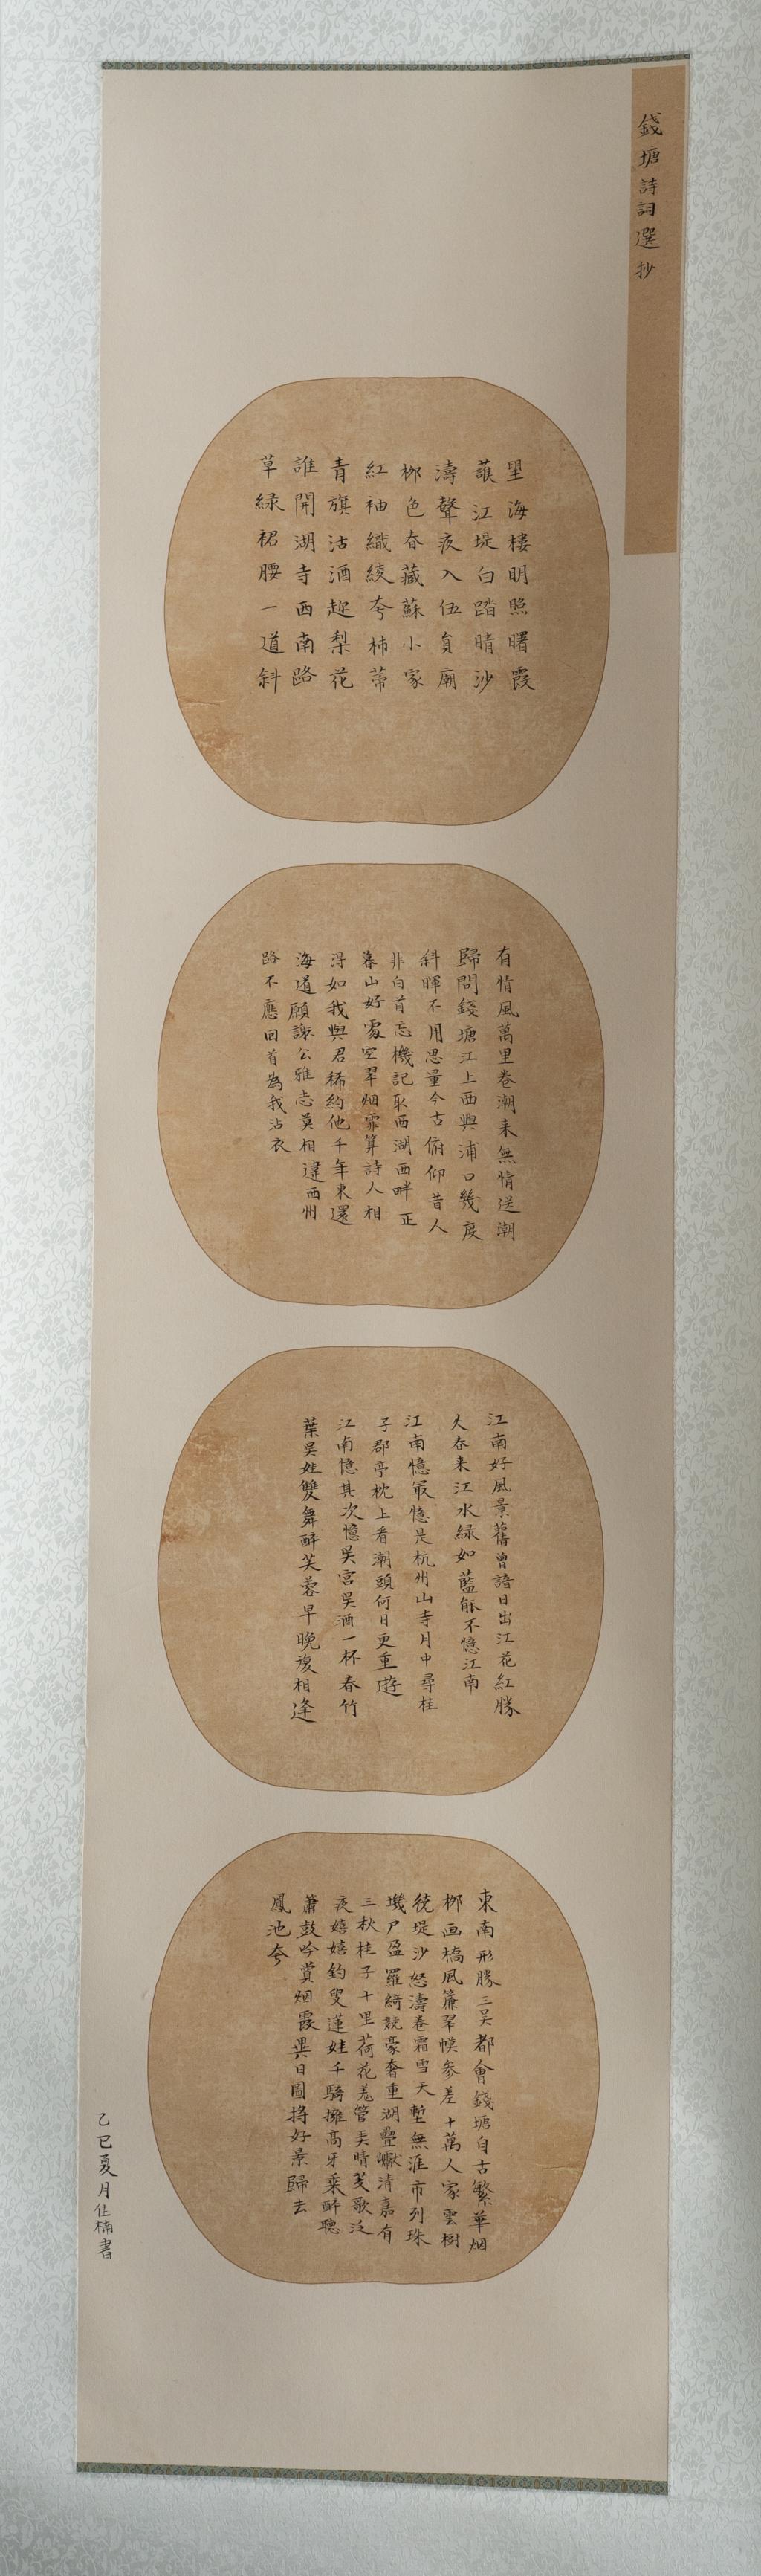 錢塘詩詞選抄
望海樓明照曙霞
護江堤白踏晴沙
濤聲夜入伍員廟
柳色春藏蘇小家
紅袖織綾夸柿蒂
青旗沽酒趁梨花
誰開湖寺西南路
草綠裙腰一道斜
有情風萬里卷潮來無情送潮
歸問錢塘江上西興浦口幾度
斜暉不用思量今古俯仰昔人
非白首忘機記取西湖西畔正
暮山好處空翠烟霏算詩人相
得如我與君稀約他千年東還
海道願謝公雅志莫相違西州
路不應回首為我沾衣
江南好風景舊曾諳日出江花紅勝
火春來江水綠如藍能不憶江南
江南憶最憶是杭州山寺月中尋桂
子郡亭枕上看潮頭何日更重遊
江南憶其次憶吳宮吳酒一杯春竹
葉吳娃雙舞醉芙蓉早晚復相逢
東南形勝三吳都會錢塘自古繁華烟
柳画橋風簾翠幙參差十萬人家雲樹
繞堤沙怒濤卷霜雪天塹無涯市列珠
璣户盈羅綺競豪奢重湖疊巘清嘉有
三秋桂子十里荷花羌管弄晴菱歌泛
夜嬉嬉釣叟蓮娃千騎擁高牙乘醉聽
簫鼓吟賞烟霞異日圖將好景歸去
鳳池夸
乙巳夏月佐楠書